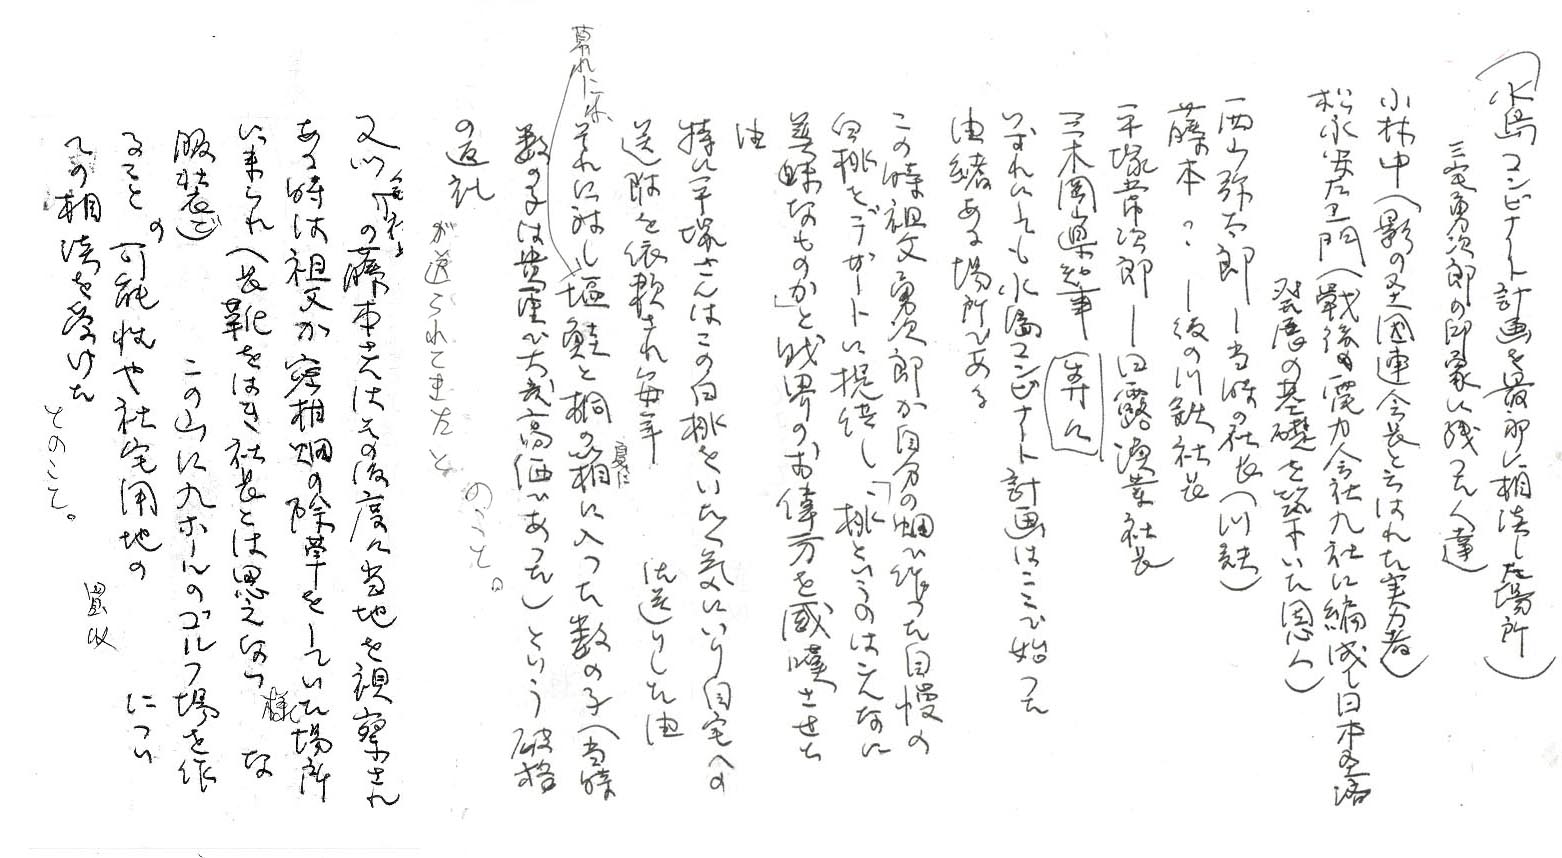 (水島コンビナート計画を最初に相談した場所)
三宅勇次郎の印象に残った人達
小林中(影の経団連会長と云はれた実力者)
松永安左エ門(戦後電力会社九社に編成し日本経済
発展の基礎を築いた恩人)
西山弥太郎―当時の社長(川鉄)
藤本?―後の川鉄社長
平塚常次郎―日露漁業社長
三木岡山県知事 特に
いずれにしても水島コンビナート計画はここで始った
由緒ある場所である
この時祖父勇次郎が自分の畑で作った自慢の
白桃をデザートに提供し、「桃というのはこんなに
美味なものか」と財界のお偉方を感嘆させた
由
特に平塚さんはこの白桃をいたく気にいり自宅への
送附を依頼され毎年夏にお送りした由
それに対し暮れには塩鮭と桐の箱に入った数の子(当時
数の子は貴重で大変高価であった)という破格
の返礼が送られてきたとのこと。
又川鉄の藤本さんはその後度々当地を視察され
ある時は祖父が蜜柑畑の除草をしていた場所
に来られ(長靴をはき社長とは思えない様な
服装で)この山に九ホールのゴルフ場を作
ることの可能性や社宅用地の買収につい
ての相談を受けたとのこと。